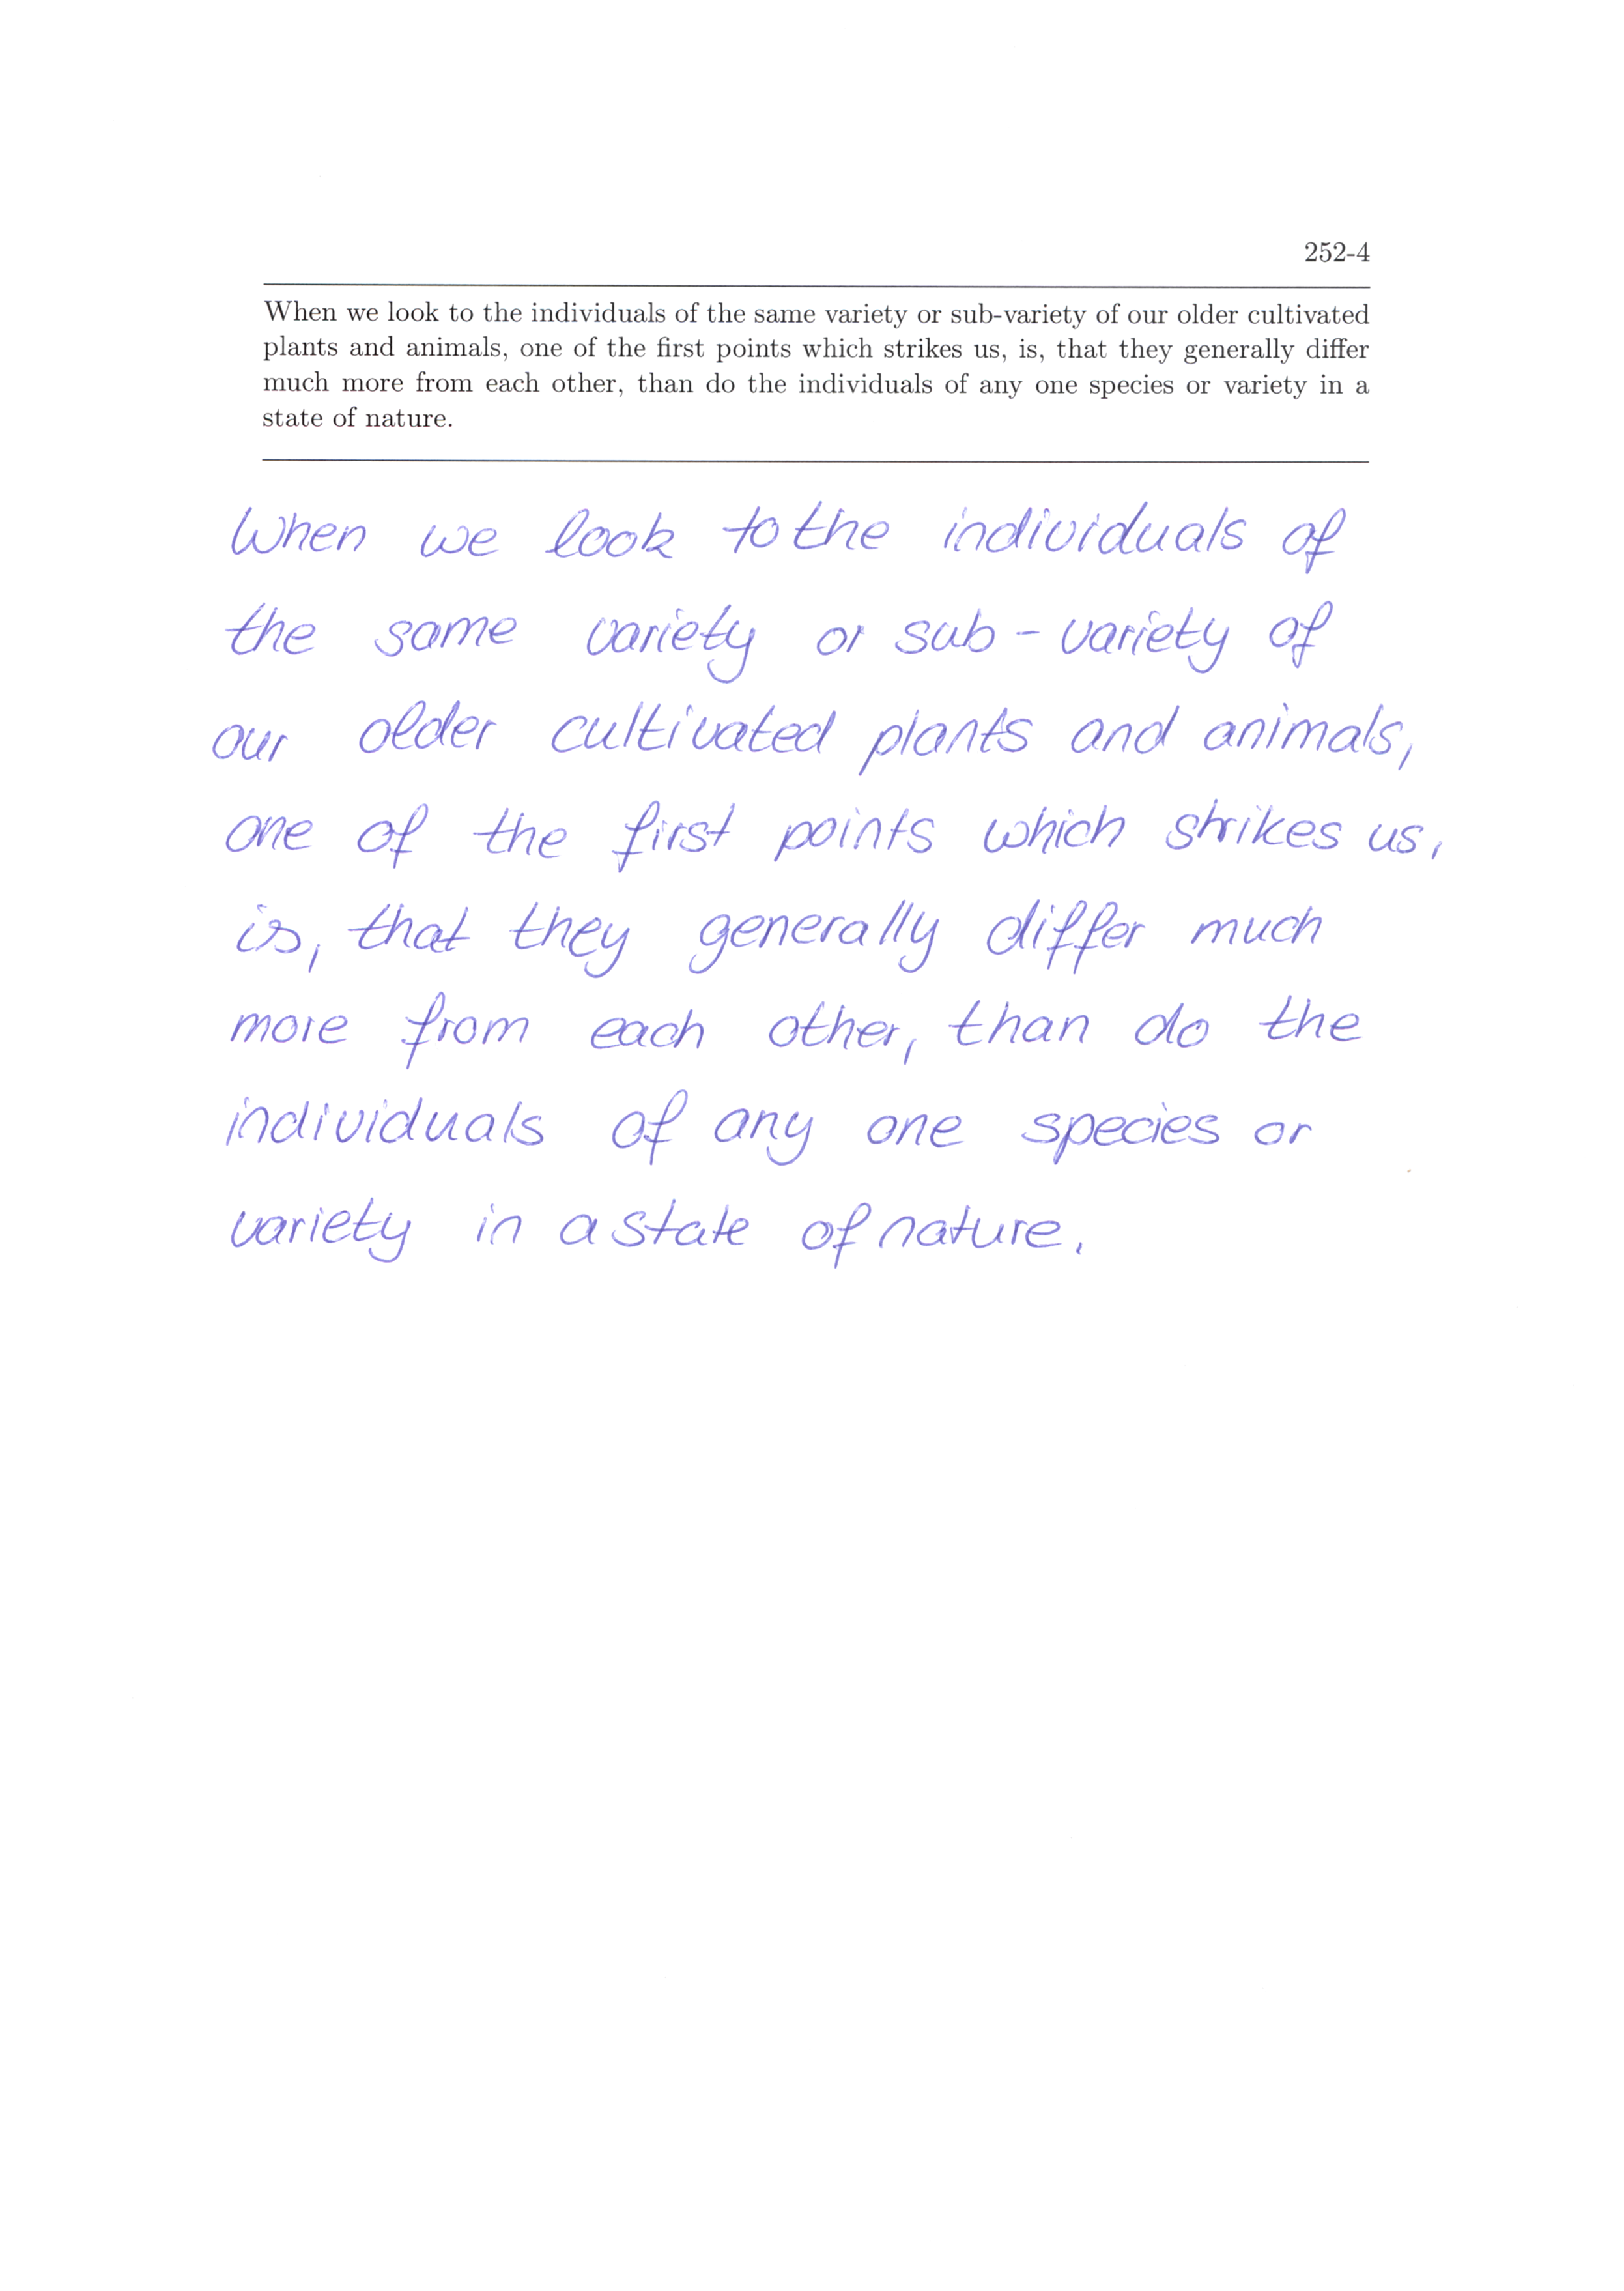 252-4
When we look to the individuals of the same variety or sub-variety of our older cultivated
plants and animals, one of the first points which strikes us, is, that they generally differ
much more from each other, than do the individuals of any one species or variety in a
state of nature.
When we look to the individuals of
the same variety or sub - variety of
our older cultivated plants and animals,
one of the first points which strikes us,
is, that they generally differ much
more from each other, than do the
individuals of any one species or
variety in a state of nature.